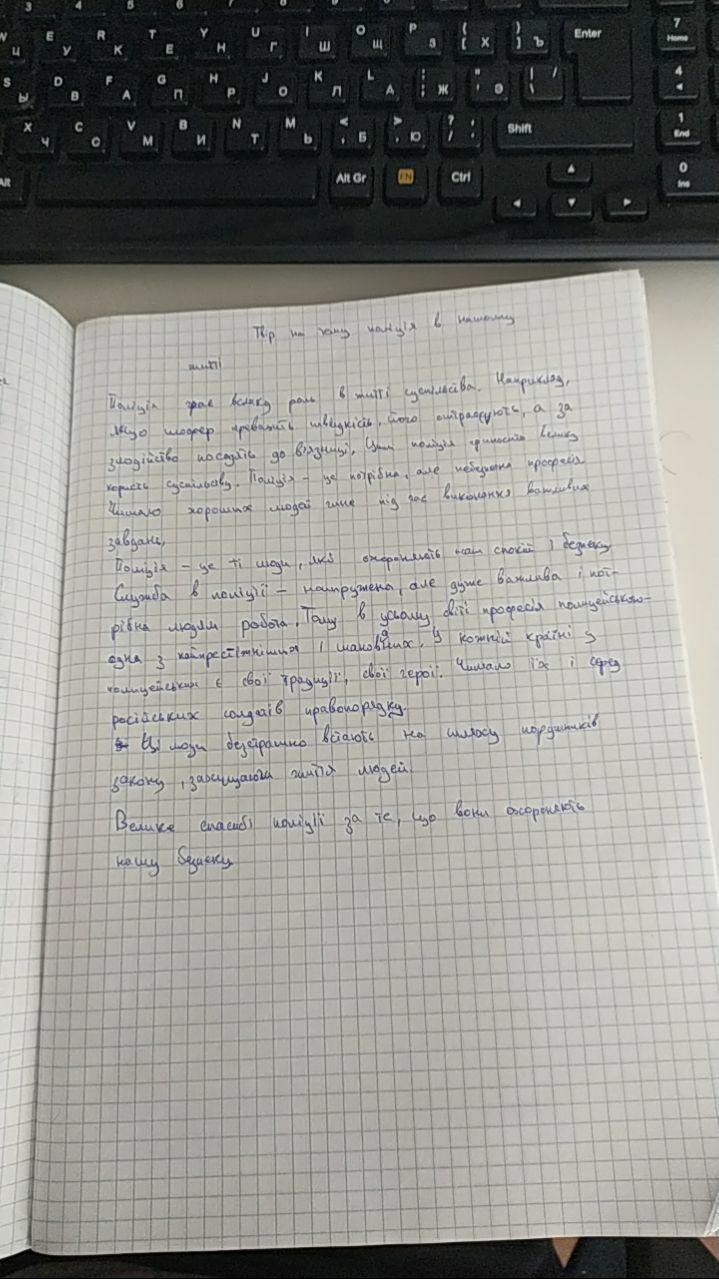 3 4 5 6 7 8 9 0
W Ц E У R К T Е Y Н U Г I Ш O Щ P З { [ Х } ] Ъ Enter 7 Home
S Ы D В F А G П H Р J О K Л L Д : ; Ж " ' Э | \ / 4
X Ч C С V М B И N Т M Ь < , Б > . Ю ? / Shift 1 End
Alt Alt Gr FN Ctrl 0 Ins
Твір на тему поліція в нашому
житті
Поліція грає велику роль в житті суспільства. Наприклад,
якщо шофер превисить швидкість, його оштрафують, а за
злодійство посадять до в'язниці. Цим поліція приносить велику
користь суспільству. Поліція – це потрібна, але небезпечна професія
Чимало хороших людей гине під час виконання важливих
завдань.
Поліція – це ті люди, які охороняють наш спокій і безпеку
Служба в поліції – напружена, але дуже важлива і пот-
рібна людям робота. Тому в усьому світі професія поліцейського–
одна з найпрестижніших і шановних. У кожній країні у
поліцейських є свої традиції, свої герої. Чимало їх і серед
російських солдатів правопорядку.
Ці люди безстрашно встають на шляху порушників
закону, захищаючи життя людей.
Велике спасибі поліції за те, що вони охороняють
нашу безпеку